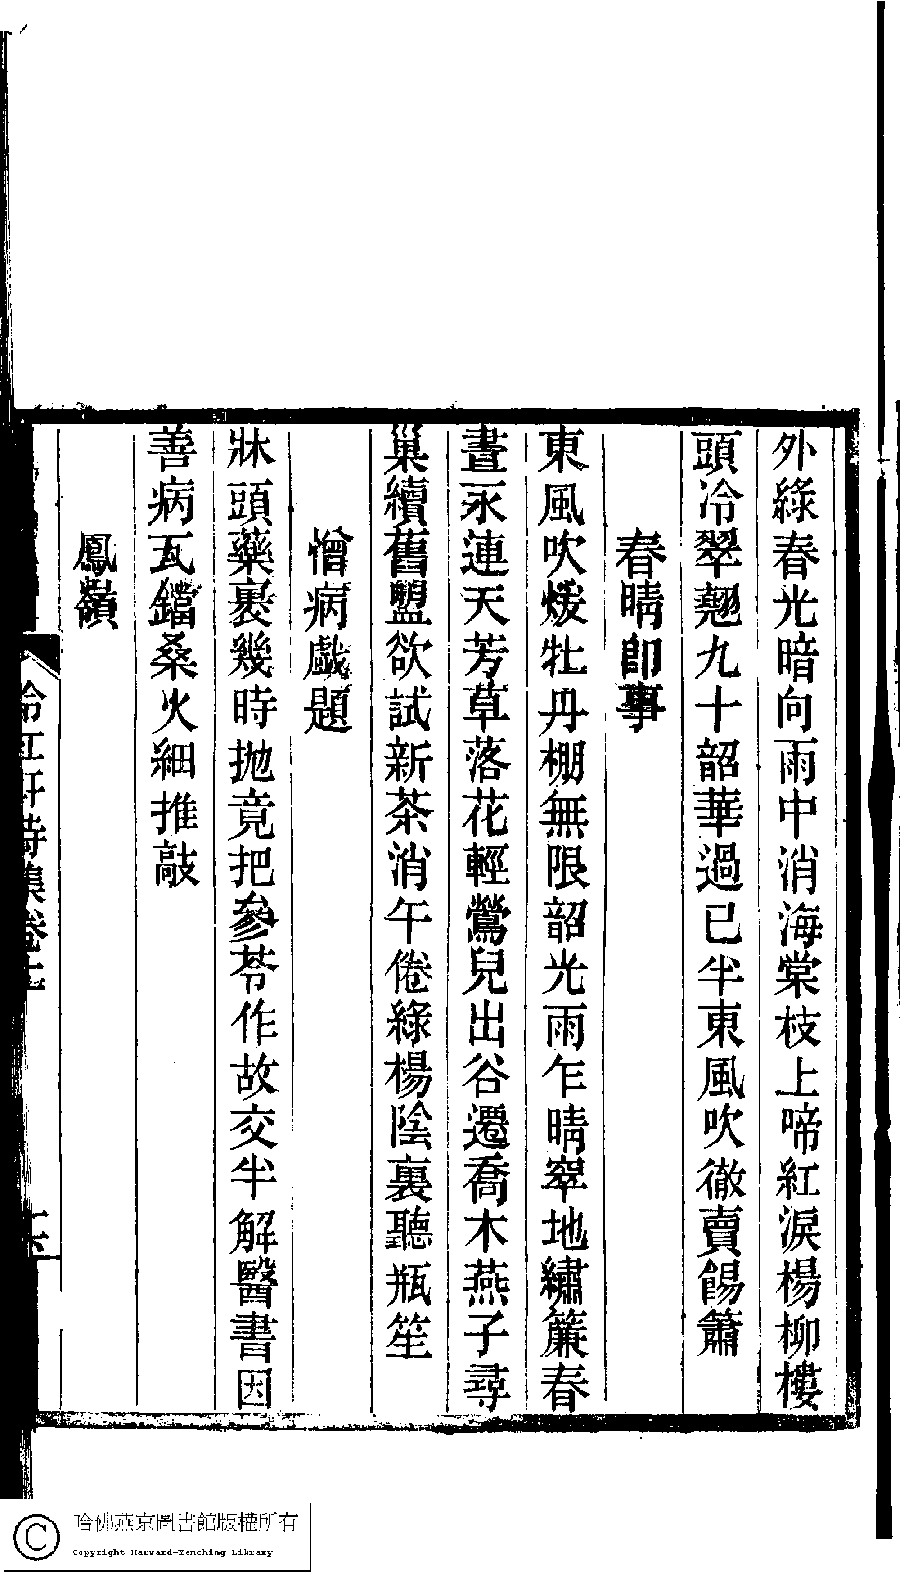 外綠春光暗向雨中消海棠枝上啼紅淚楊柳樓
頭冷翠翹九十韶華過已半東風吹徹賣餳簫
春晴即事
東風吹煖牡丹棚無限韶光雨乍晴窣地繡簾春
晝永連天芳草落花輕鶯兒出谷遷喬木燕子尋
巢續舊盟欲試新茶消午倦綠楊陰裏聽瓶笙
憎病戲題
牀頭藥裹幾時拋竟把參苓作故交半解醫書因
善病瓦鐺桑火細推敲
鳳嶺
冷紅軒詩集卷上
十六
哈佛燕京圖書館版權所有
Copyright Harvard-Yenching Library